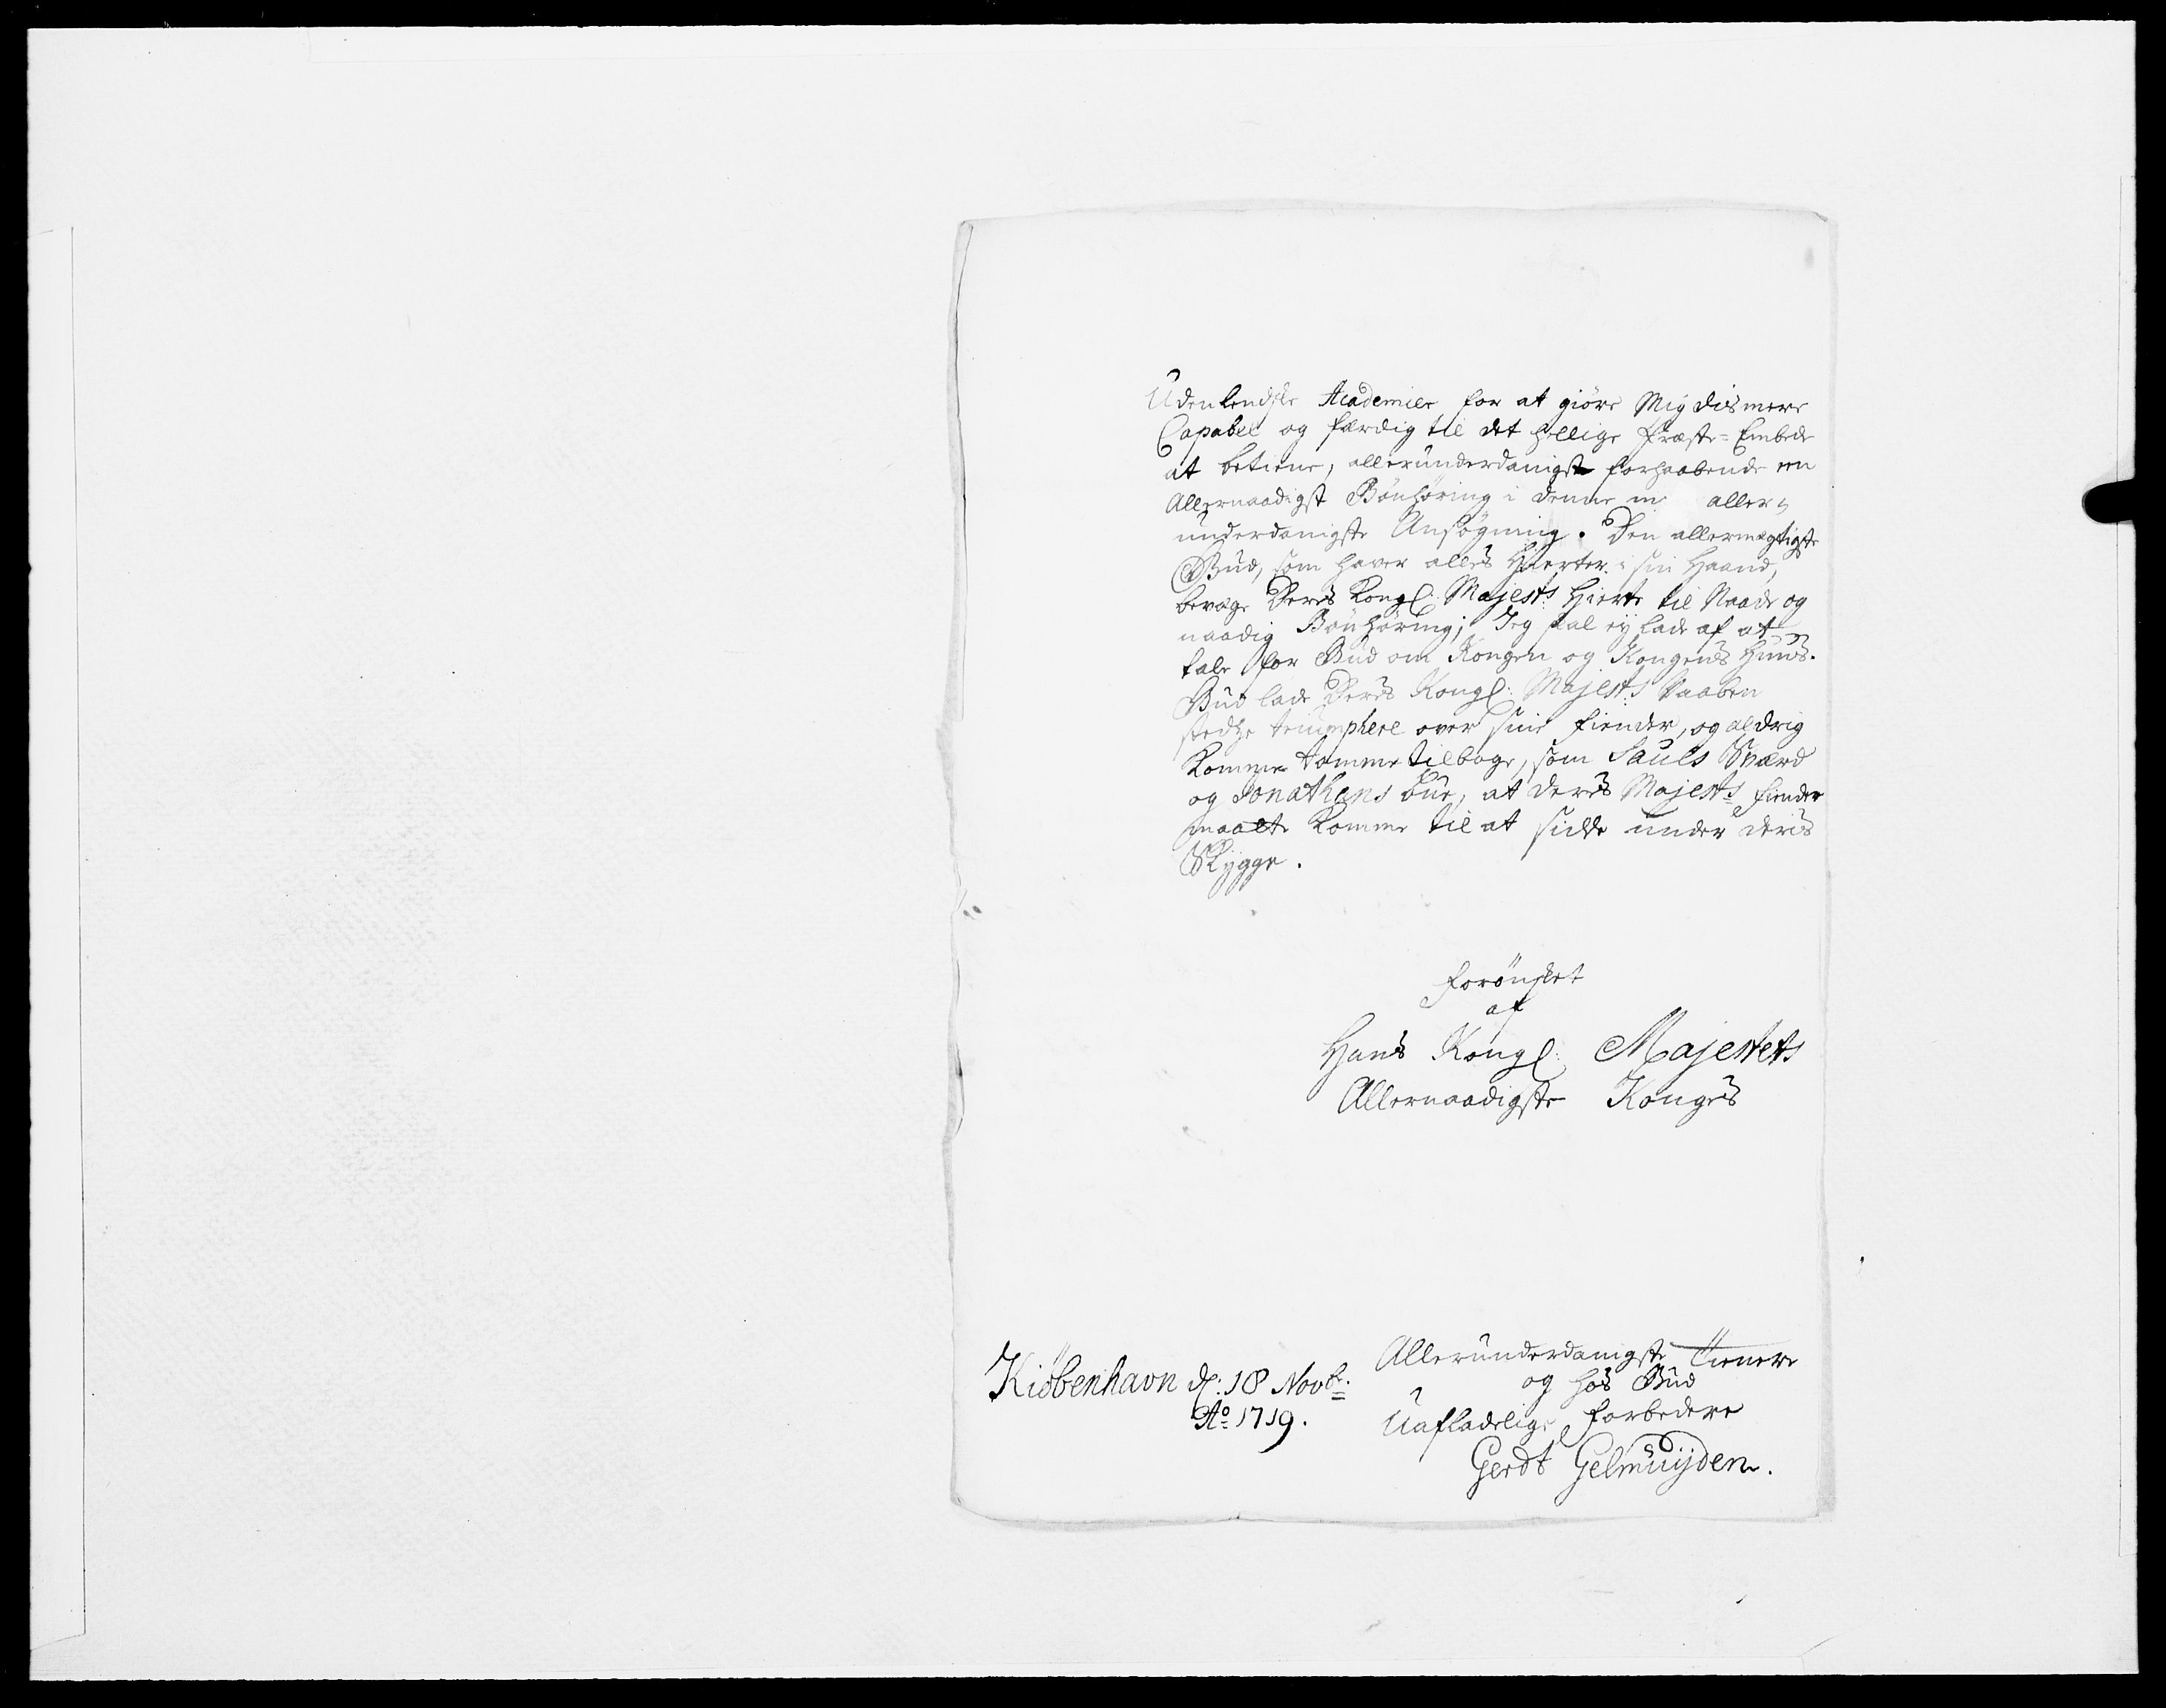 Udenlendske Academier for at giöre Mig dis mere
Capabel og færdig til det hellige Præste-Embede
at betiene, allerunderdanigst forhaabende een
Allernaadigst Bönhöring i denne m aller-
underdanigste Ansögning. Den allermegtigste
Gud, som haver alles Hierter i sin Haand,
bevæge Deris Kongl: Majests: Hierte til Naade og
naadig Bönhöring; Jeg skal ej lade af at
tale for Gud om Kongen og Kongens Huus.
Gud lade Deris Kongl: Majests: Vaaben
stedse triumphere over sine fiender, og aldrig
Komme tomme tilbage, som Sauls Sværd
og Jonathans bue, at deris Majests fiender
maatte komme til at sidde under deris
Skygge.
forönsket
af
Hans Kongl: Majestets
Allernaadigste Konges
Allerunderdanigste Tienere
og hos Gud
Uafladelige forbedere
Gerdt Gelmuijden.
Kiöbenhavn d: 18 Novbr.
Ao 1719.